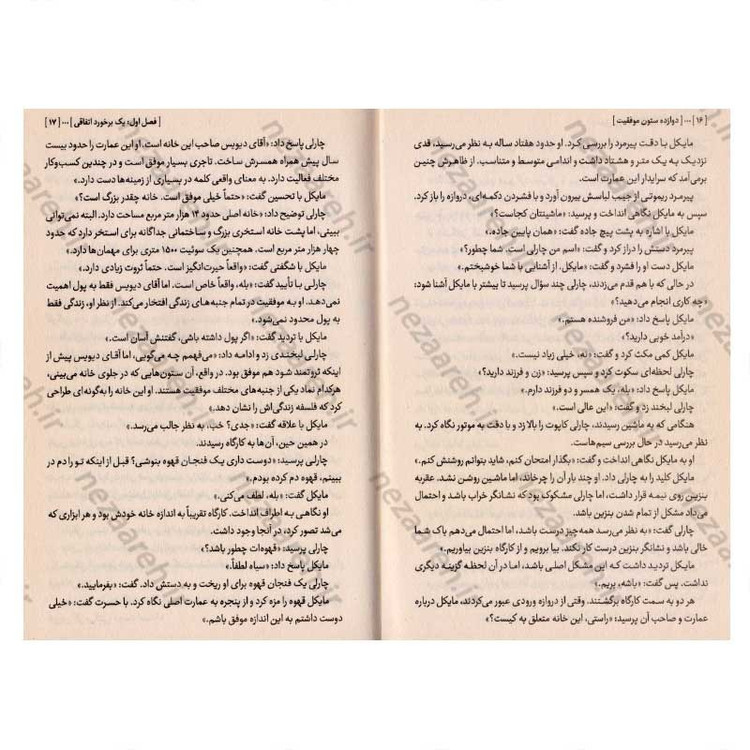 [ ۱۶ ] ... [ دوازده ستون موفقیت ]
مایکل با دقت پیرمرد را بررسی کرد. او حدود هفتاد ساله به نظر می‌رسید. قدی
نزدیک به یک متر و هشتاد داشت و اندامی متوسط و متناسب. از ظاهرش چنین
برمی‌آمد که سرایدار این عمارت است.
پیرمرد ریموتی از جیب لباسش بیرون آورد و با فشردن دکمه‌ای، دروازه را باز کرد.
سپس به مایکل نگاهی انداخت و پرسید: «ماشینتان کجاست؟»
مایکل با اشاره به پشت پیچ جاده گفت: «همان پایین جاده.»
پیرمرد دستش را دراز کرد و گفت: «اسم من چارلی است. شما چطور؟»
مایکل دست او را فشرد و گفت: «مایکل. از آشنایی با شما خوشبختم.»
در حالی که با هم قدم می‌زدند، چارلی چند سؤال پرسید تا بیشتر با مایکل آشنا شود:
«چه کاری انجام می‌دهید؟»
مایکل پاسخ داد: «من فروشنده هستم.»
«درآمد خوبی دارید؟»
مایکل کمی مکث کرد و گفت: «نه، خیلی زیاد نیست.»
چارلی لحظه‌ای سکوت کرد و سپس پرسید: «زن و فرزند دارید؟»
مایکل پاسخ داد: «بله، یک همسر و دو فرزند دارم.»
چارلی لبخند زد و گفت: «این عالی است.»
هنگامی که به ماشین رسیدند، چارلی کاپوت را بالا زد و با دقت به موتور نگاه کرد. به
نظر می‌رسید در حال بررسی سیم‌هاست.
او به مایکل نگاهی انداخت و گفت: «بگذار امتحان کنم، شاید بتوانم روشنش کنم.»
مایکل کلید را به چارلی داد. او چند بار آن را چرخاند، اما ماشین روشن نشد. عقربه
بنزین روی نیمه قرار داشت، اما چارلی مشکوک بود که نشانگر خراب باشد و احتمال
می‌داد مشکل از تمام شدن بنزین باشد.
چارلی گفت: «به نظر می‌رسد همه‌چیز درست باشد، اما احتمال می‌دهم باک شما
خالی باشد و نشانگر بنزین درست کار نکند. بیا برویم و از کارگاه بنزین بیاوریم.»
مایکل تردید داشت که این مشکل اصلی باشد، اما در آن لحظه گزینه دیگری
نداشت. پس گفت: «باشه، بریم.»
هر دو به سمت کارگاه برگشتند. وقتی از دروازه ورودی عبور می‌کردند، مایکل درباره
عمارت و صاحب آن پرسید: «راستی، این خانه متعلق به کیست؟»
[ فصل اول: یک برخورد اتفاقی ] ... [ ۱۷ ]
چارلی پاسخ داد: «آقای دیویس صاحب این خانه است. او این عمارت را حدود بیست
سال پیش همراه همسرش ساخت. تاجری بسیار موفق است و در چندین کسب‌وکار
مختلف فعالیت دارد. به معنای واقعی کلمه در بسیاری از زمینه‌ها دست دارد.»
مایکل با تحسین گفت: «حتماً خیلی موفق است. خانه چقدر بزرگ است؟»
چارلی توضیح داد: «خانه اصلی حدود ۱۴ هزار متر مربع مساحت دارد. البته نمی‌توانی
ببینی، اما پشت خانه استخری بزرگ و ساختمانی جداگانه برای استخر دارد که حدود
چهار هزار متر مربع است. همچنین یک سوئیت ۱۵۰۰ متری برای مهمان‌ها دارد.»
مایکل با شگفتی گفت: «واقعاً حیرت‌انگیز است. حتماً ثروت زیادی دارد.»
چارلی با تأیید گفت: «بله، واقعاً خاص است. اما آقای دیویس فقط به پول اهمیت
نمی‌دهد. او به موفقیت در تمام جنبه‌های زندگی افتخار می‌کند. از نظر او، زندگی فقط
به پول محدود نمی‌شود.»
مایکل با تردید گفت: «اگر پول داشته باشی، گفتنش آسان است.»
چارلی لبخندی زد و ادامه داد: «می‌فهمم چه می‌گویی، اما آقای دیویس پیش از
اینکه ثروتمند شود هم موفق بود. در واقع، آن ستون‌هایی که در جلوی خانه می‌بینی،
هرکدام نماد یکی از جنبه‌های مختلف موفقیت هستند. او این خانه را به‌گونه‌ای طراحی
کرد که فلسفه زندگی‌اش را نشان دهد.»
مایکل با علاقه گفت: «جدی؟ خب، به نظر جالب می‌رسد.»
در همین حین، آن‌ها به کارگاه رسیدند.
چارلی پرسید: «دوست داری یک فنجان قهوه بنوشی؟ قبل از اینکه تو را دم در
ببینم، قهوه دم کرده بودم.»
مایکل گفت: «بله، لطف می‌کنی.»
او نگاهی به اطراف انداخت. کارگاه تقریباً به اندازه خانه خودش بود و هر ابزاری که
می‌شد تصور کرد، در آنجا وجود داشت.
چارلی پرسید: «قهوه‌ات چطور باشد؟»
مایکل پاسخ داد: «سیاه لطفاً.»
چارلی یک فنجان قهوه برای او ریخت و به دستش داد. گفت: «بفرمایید.»
مایکل قهوه را مزه کرد و از پنجره به عمارت اصلی نگاه کرد. با حسرت گفت: «خیلی
دوست داشتم به این اندازه موفق باشم.»
nezaareh.ir